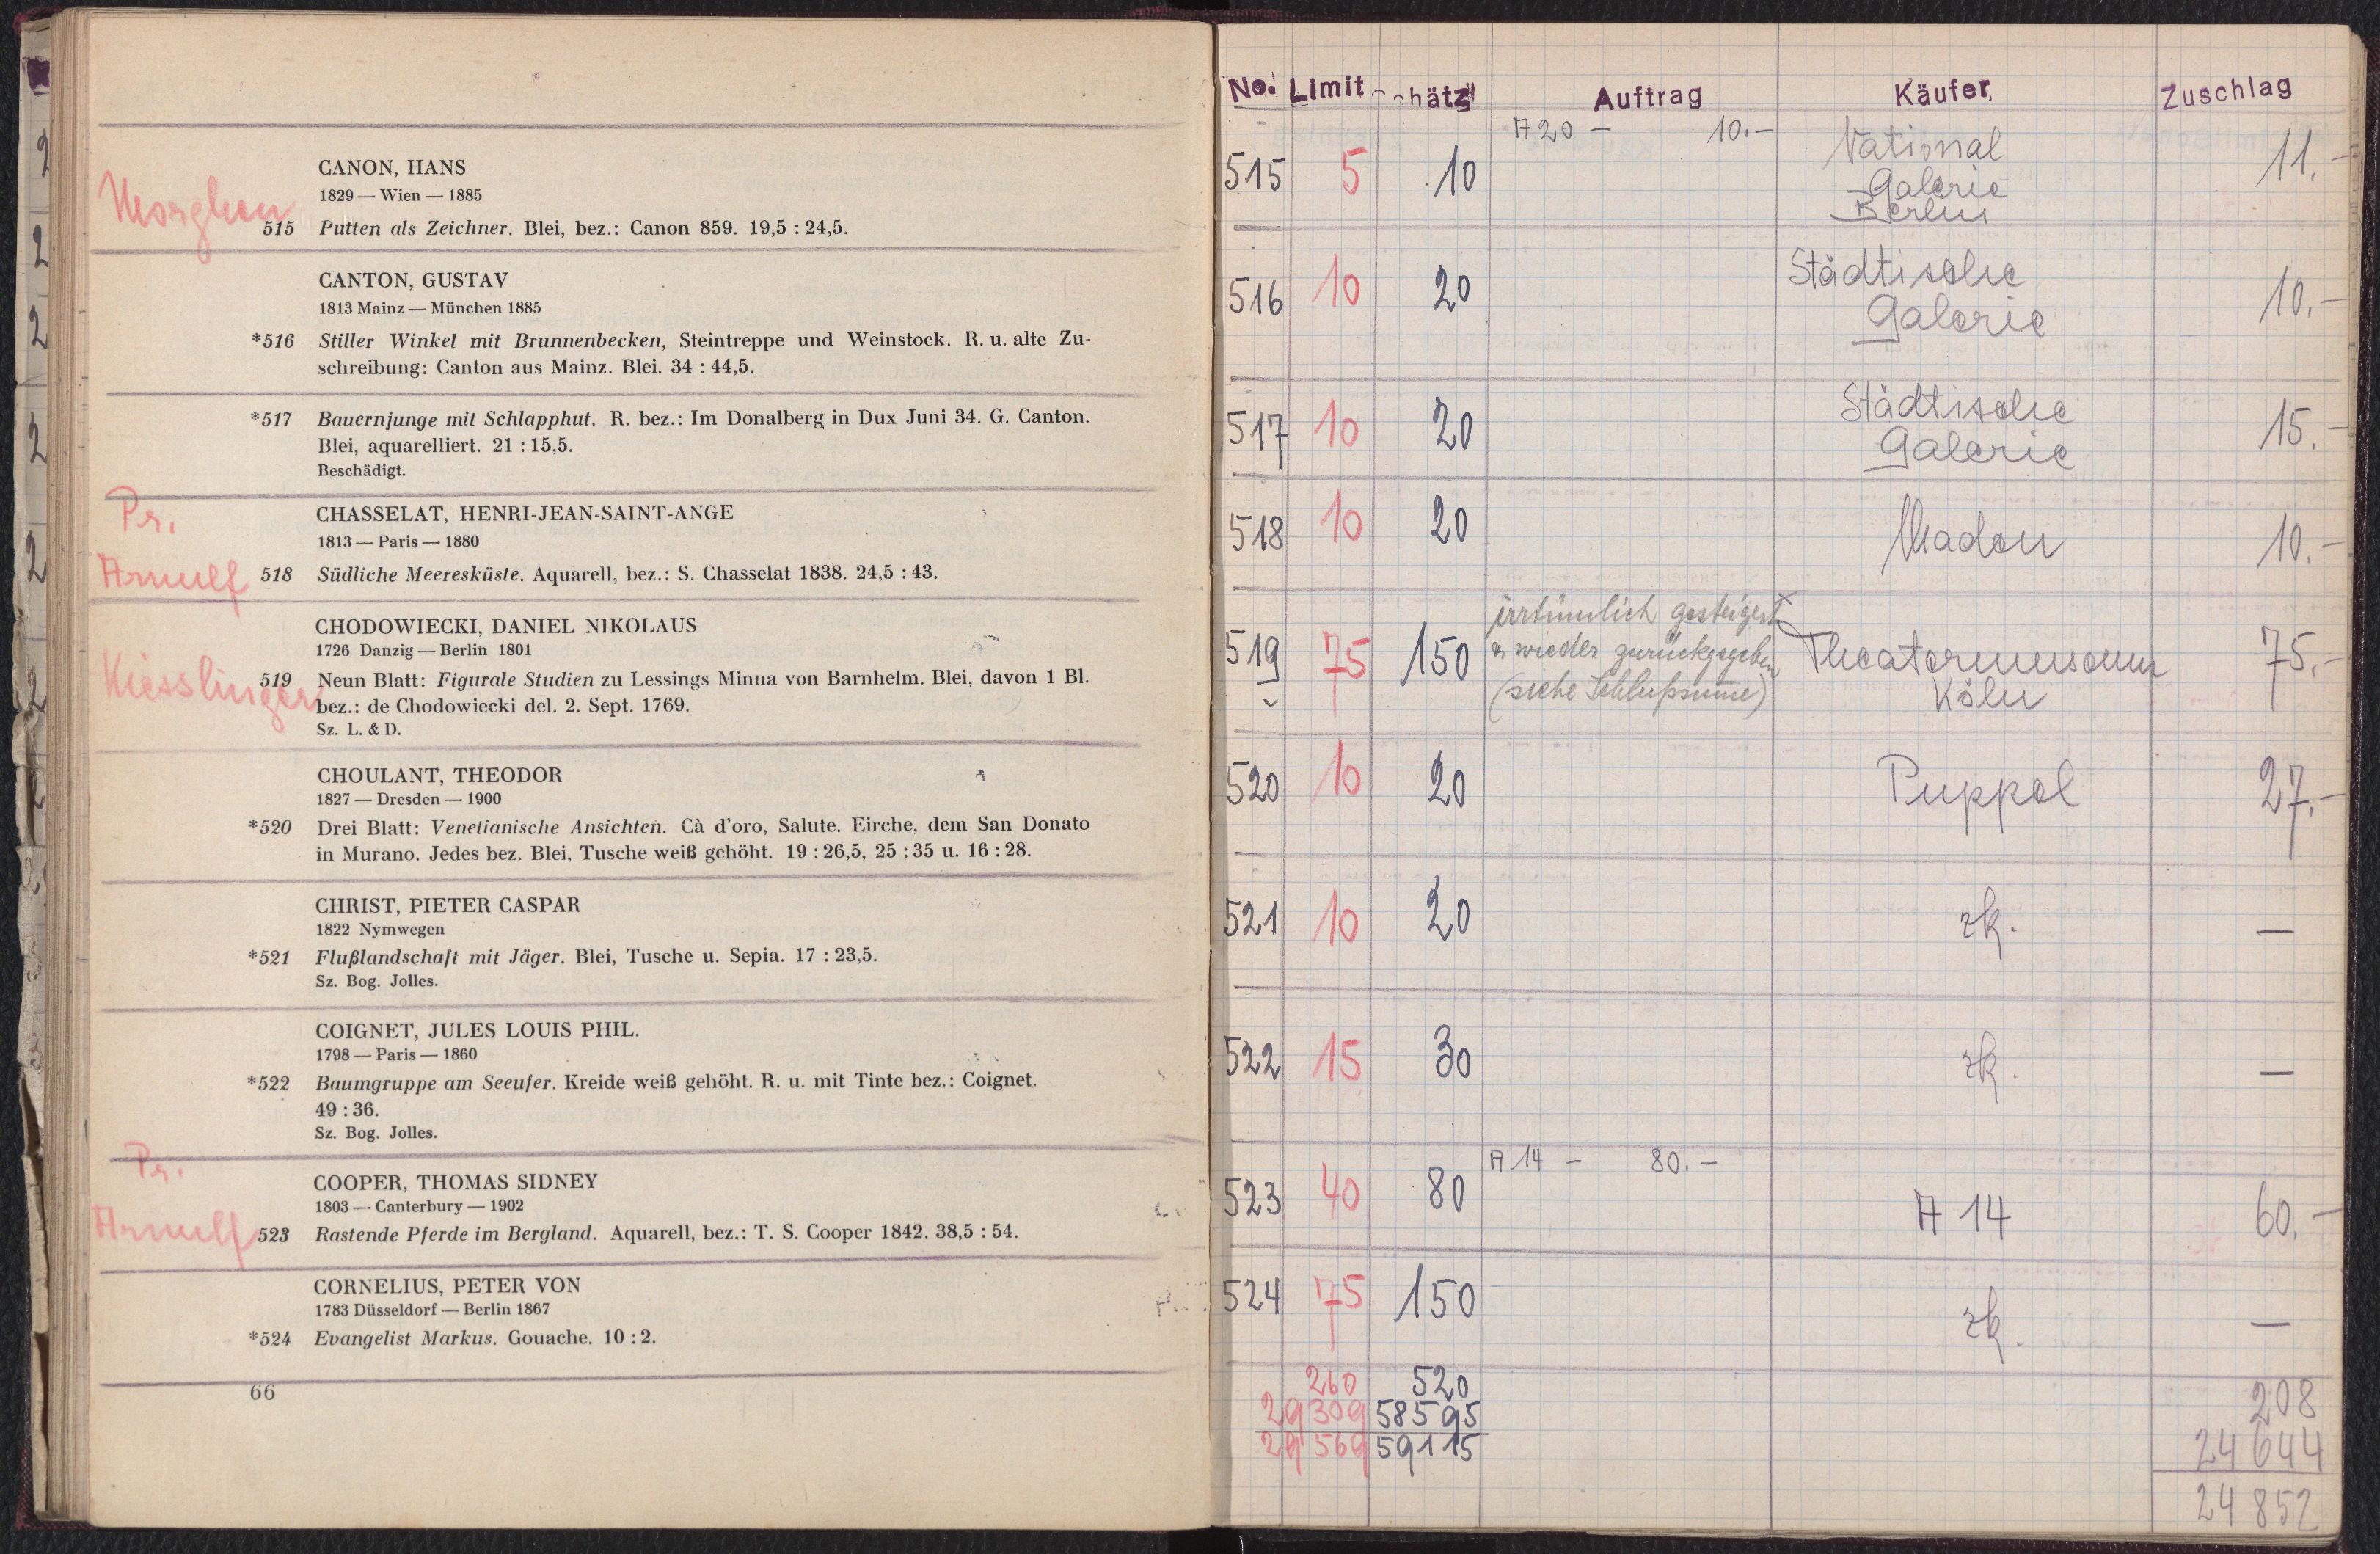 CANON, HANS
1829 — Wien — 1885
515 Putten als Zeichner. Blei, bez.: Canon 859. 19,5 : 24,5.
CANTON, GUSTAV
1813 Mainz — München 1885
*516 Stiller Winkel mit Brunnenbecken, Steintreppe und Weinstock. R. u. alte Zu-
schreibung: Canton aus Mainz. Blei. 34 : 44,5.
*517 Bauernjunge mit Schlapphut. R. bez.: Im Donalberg in Dux Juni 34. G. Canton.
Blei, aquarelliert. 21 : 15,5.
Beschädigt.
Pr.
CHASSELAT, HENRI-JEAN-SAINT-ANGE
1813 — Paris — 1880
Arnulf 518 Südliche Meeresküste. Aquarell, bez.: S. Chasselat 1838. 24,5 : 43.
CHODOWIECKI, DANIEL NIKOLAUS
1726 Danzig — Berlin 1801
Kiesslinger 519 Neun Blatt: Figurale Studien zu Lessings Minna von Barnhelm. Blei, davon 1 Bl.
bez.: de Chodowiecki del. 2. Sept. 1769.
Sz. L. & D.
CHOULANT, THEODOR
1827 — Dresden — 1900
*520 Drei Blatt: Venetianische Ansichten. Cà d'oro, Salute. Eirche, dem San Donato
in Murano. Jedes bez. Blei, Tusche weiß gehöht. 19 : 26,5, 25 : 35 u. 16 : 28.
CHRIST, PIETER CASPAR
1822 Nymwegen
*521 Flußlandschaft mit Jäger. Blei, Tusche u. Sepia. 17 : 23,5.
Sz. Bog. Jolles.
COIGNET, JULES LOUIS PHIL.
1798 — Paris — 1860
*522 Baumgruppe am Seeufer. Kreide weiß gehöht. R. u. mit Tinte bez.: Coignet.
49 : 36.
Sz. Bog. Jolles.
Pr.
COOPER, THOMAS SIDNEY
1803 — Canterbury — 1902
Arnulf 523 Rastende Pferde im Bergland. Aquarell, bez.: T. S. Cooper 1842. 38,5 : 54.
CORNELIUS, PETER VON
1783 Düsseldorf — Berlin 1867
*524 Evangelist Markus. Gouache. 10 : 2.
66
No. Limit Schätz Auftrag Käufer Zuschlag
A 20 — 10.—
515 5 10 National 11.—
Galerie
Berlin
516 10 20 Städtische 10.—
Galerie
517 10 20 Städtische 15.—
Galerie
518 10 20 10.—
irrtümlich gesteigert
519 75 150 u. wieder zurückgegeben Theatermuseum 75.—
(siehe Schlußsumme) Köln
520 10 20 Puppel 27.—
521 10 20 zk. —
522 15 30 zk. —
A 14 — 80.—
523 40 80 A 14 60.—
524 75 150 zk. —
260 520 208
29309 58595 24644
29569 59115 24852